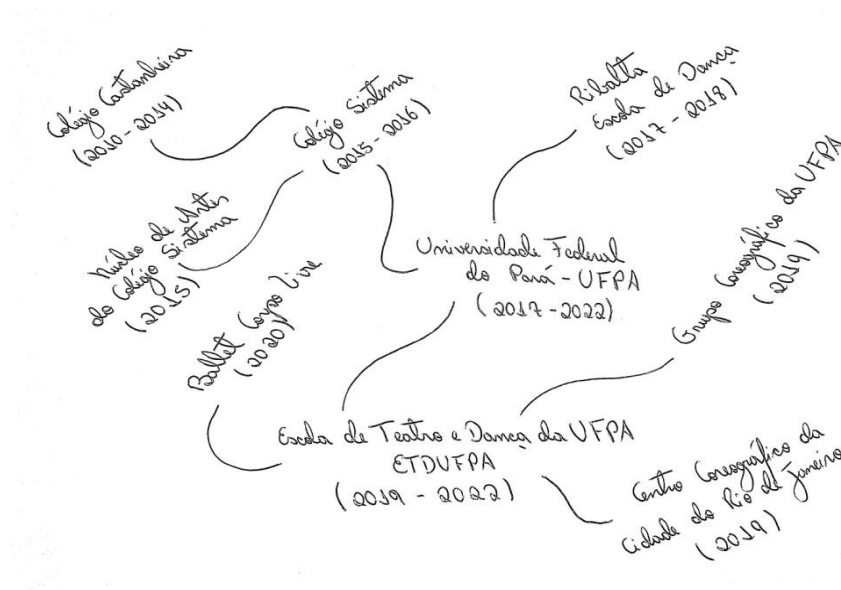 Colégio Castanheira
(2010 - 2014)
Colégio Sistema
(2015 - 2016)
Ribalta
Escola de Dança
(2017 - 2018)
Núcleo de Artes
do Colégio Sistema
(2015)
Universidade Federal
do Pará - UFPA
(2017 - 2022)
Grupo Coreográfico da UFPA
(2019)
Ballet Corpo Livre
(2020)
Escola de Teatro e Dança da UFPA
ETDUFPA
(2019 - 2022)
Centro Coreográfico da
Cidade do Rio de Janeiro
(2019)